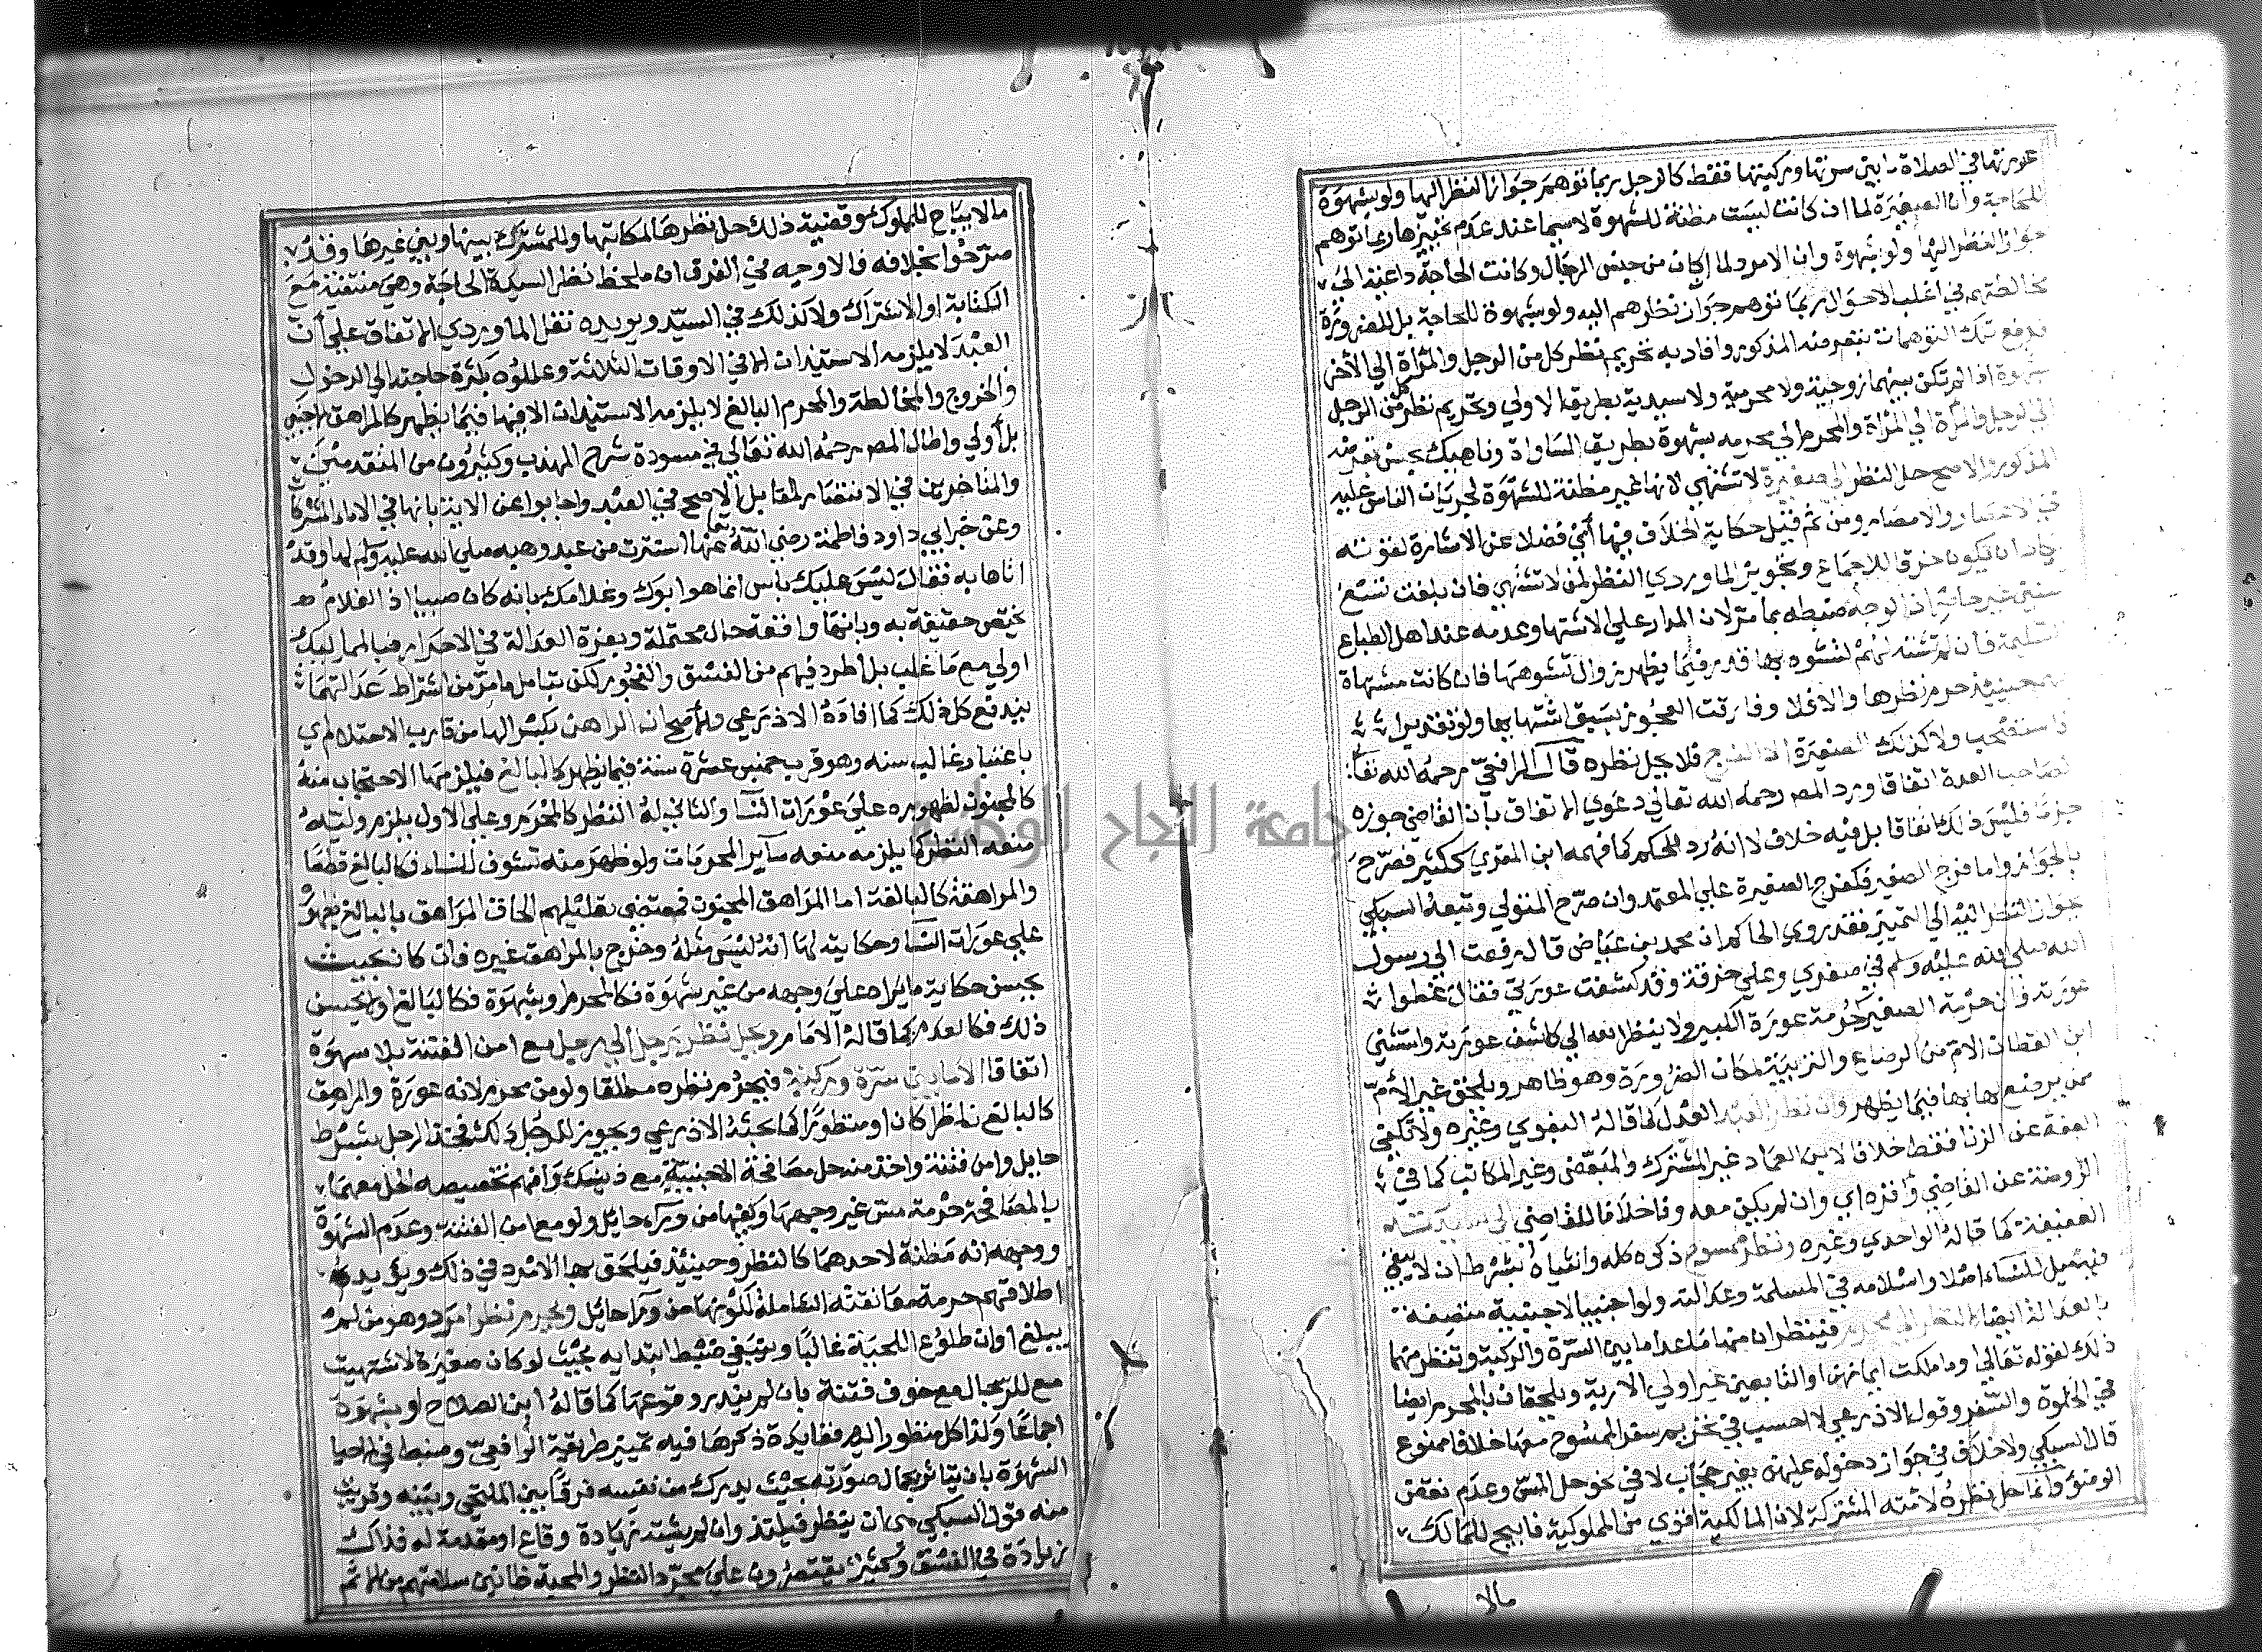 عورتها في الصلاة ما بين سرتها وركبتها فقط كالرجل ربما توهم جواز النظر اليها ولو بشهوة
للحاجة وان الصغيرة لما ان كانت ليست مظنة للشهوة لا سيما عند عدم تمييزها ربما توهم
جواز النظر اليها ولو بشهوة وان الامرد لما ان كان من جنس الرجال وكانت الحاجة داعية الى
مخالطتهم في اغلب الاحوال ربما توهم جواز نظرهم اليه ولو بشهوة للحاجة بل للضرورة
فدفع تلك التوهمات بتعرضه المذكور وافاد به تحريم نظر كل من الرجل والمرأة الي الاخر
بشهوة اذا لم تكن بينهما زوجية ولا محرمية ولا سيدية بطريق الاولي وتحريم نظر كل من الرجل
الي الرجل والمرأة الي المرأة والمحرم الي محرمه بشهوة بطريق المساواة وناهيك بحسن تعرضه
المذكور والاصح حل النظر الي صغيرة لا تشتهي لانها غير مظنة للشهوة لجريان الناس عليه
في الاعصار والامصار ومن ثم قيل حكاية الخلاف فيها أي فضلا عن الاشارة لقوته
يكاد ان تكون خرقا للاجماع وتجويز الماوردي النظر لمن لا تشتهي فان بلغت تسع
سنين غير جائز اذ الوجه ضبطه بما مر لان المدار علي الاشتها وعدمه عند اهل الطباع
السليمة فان لم تشته لهم لتشوه بها قدر فيما يظهر زوال تشوهها فان كانت مشتهاة
لهم حينئذ حرم نظرها والا فلا وفارقت العجوز بسبق اشتهايها ولو تقديرا
فاستصحب ولا كذلك الصغيرة الا الفرج فلا يحل نظره قال الرافعي رحمه الله تعا
لصاحب العدة اتفاقا ورد المصـ رحمه الله تعالي دعوي الاتفاق بان القاضي جوزه
جزما فليس ذلك اتفاقا بل فيه خلاف لا انه رد للحكم كما فهمه ابن المقري ككثير فصرح
بالجواز واما فرج الصغير فكفرج الصغيرة علي المعتمد وان صرح المتولي وتبعه السبكي
بجواز النظر اليه الي التمييز فقد روي الحاكم ان محمد بن عياض قال رفعت الي رسول
الله صلي الله عليه وسلم في صغري وعلي خرقة وقد كشفت عورتي فقال غطوا
عورته فان حرمة الصغير كحرمة عورة الكبير ولا ينظر الله الي كاشف عورته واستثني
ابن القطان الام من الرضاع والتربية لمكان الضرورة وهو ظاهر ويلحق غير الام
ممن يرضع بها بها فيما يظهر وان نظر العبد العدل لما قاله البغوي وغيره ولا تكفي
العفة عن الزنا فقط خلافا لابن العماد غير المشترك والمبعض وغير المكاتب كما في
الروضة عن القاضي واقره اي وان لم يكن معه وفا خلافا للقاضي الي سيدته
العفيفة كما قاله الواحدي وغيره ونظر ممسوح ذكره كله وانثياه بشرط ان لا يبقي
فيه ميل للنساء اصلا واسلامه في المسلمة وعدالته ولو اجنبيا لاجنبية متصفة
بالعدالة ايضا كالنظر الي محرم فينظران منها ما عدا ما بين السرة والركبة وتنظر منهما
ذلك لقوله تعالي او ما ملكت ايمانهن او التابعين غير اولي الاربة ويلحقان بالمحرم ايضا
في الخلوة والسفر وقول الاذرعي لا احسب في تحريم سفر الممسوح معها خلافا ممنوع
قال السبكي ولا خلاف في جواز دخوله عليهن بغير حجاب لا في نحو حل المس وعدم نقض
الوضوء وانما حل نظره لامته المشتركة لان المالكية اقوي من المملوكية فابيح للمالك
مالا
مالا يباح للمملوك وقضية ذلك حل نظرها لمكاتبها وللمشترك بينها وبين غيرها وقد
صرحوا بخلافه فالاوجه في الفرق ان ملحظ نظر السيدة الحاجة وهي منتفية مع
الكتابة او الاشتراك ولا كذلك في السيد ويويده نقل الماوردي الاتفاق علي ان
العبد لا يلزمه الاستيذان الا في الاوقات الثلاثة وعللوه بكثرة حاجته الي الدخول
والخروج والمخالطة والمحرم البالغ لا يلزمه الاستيذان الا فيها فيما يظهر كالمراهق الاجنبي
بل أولي واطال المصـ رحمه الله تعالي في مسودة شرح المهذب وكثيرون من المتقدمين
والمتاخرين في الانتصار لمقابل الاصح في العبد واجابوا عن الاية بانها في الاماء المشركات
وعن خبر ابي داود فاطمة رضي الله عنها استترت من عبد وهبه صلي الله عليه وسلم لها وقد
اتاها به فقال ليس عليك باس انما هو ابوك وغلامك بانه كان صبيا اذ الغلام
يختص حقيقة به وبانها واقعة حال محتملة وبعزة العدالة في الاحرار فبالمماليك
اولي مع ما غلب بل اطرد فيهم من الفسق والفجور لكن بتامل ما مر من اشتراط عدالتهما
يندفع كل ذلك كما افاده الاذرعي والاصح ان المراهق بكسر الها من قارب الاحتلام اي
باعتبار غالب سنه وهو قرب خمس عشرة سنة فيما يظهر كالبالغ فيلزمها الاحتجاب منه
كالمجنون لظهوره علي عورات النسا والثاني له النظر كالمحرم وعلي الاول يلزم وليه
منعه النظر كما يلزمه منعه ساير المحرمات ولو ظهر منه تشوف للنساء فكالبالغ قطعا
والمراهقة كالبالغة اما المراهق المجنون فمقتضي تعليلهم الحاق المراهق بالبالغ بظهوره
علي عورات النسا وحكايته لها انه ليس مثله وخرج بالمراهق غيره فان كان بحيث
يحسن حكاية ما يراه علي وجهه من غير شهوة فكالمحرم او بشهوة فكالبالغ او لا يحسن
ذلك فكالعدم كما قاله الامام ويحل نظر رجل الي رجل مع امن الفتنة بلا شهوة
اتفاقا الا ما بين سرة وركبة فيحرم نظره مطلقا ولو من محرم لانه عورة والمراهق
كالبالغ ناظرا كان او منظورا كما بحثه الاذرعي ويجوز للرجل دلك فخذ الرجل بشرط
حايل وامن فتنة واخذ منه حل مصافحة الاجنبية مع ذينك وافهم تخصيصه الحل معهما
بالمصافحة حرمة مس غير وجهها وكفيها من وراء حايل ولو مع امن الفتنة وعدم الشهوة
ووجهه انه مظنة لاحدهما كالنظر وحينئذ فيلحق بها الامرد في ذلك ويؤيده
اطلاقهم حرمة معانقته الشاملة لكونها من ورا حايل ويحرم نظر امرد وهو من لم
يبلغ اوان طلوع اللحية غالبا وينبغي ضبط ابتدايه بحيث لو كان صغيرة لاشتهيت
مع للرجال مع خوف فتنة بان لم يندر وقوعها كما قاله ابن الصلاح او بشهوة
اجماعا ولذا كل منظور اليه ففايدة ذكرها فيه تمييز طريقة الرافعي وضبط في الاحيا
الشهوة بان يتاثر بجمال صورته بحيث يدرك من نفسه فرقا بين الملتحي وبينه وقريب
منه قول السبكي هي ان ينظر فيلتذ وان لم يشته زيادة وقاع او مقدمة له فذاك
زيادة في الفسق وكثير يقتصرون علي مجرد النظر والمحبة ظانين سلامتهم من الاثم